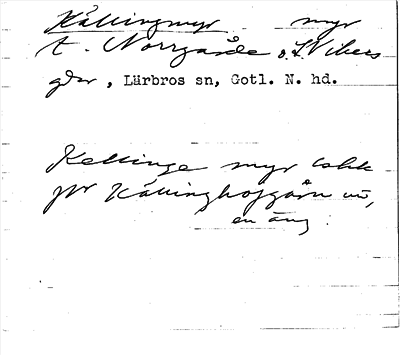 Källingmyr myr
t. Norrgårde o. St. Vikers
gdr, Lärbros sn, Gotl. N. hd.
Kellinge myr
för Källinghofgårn
en äng.